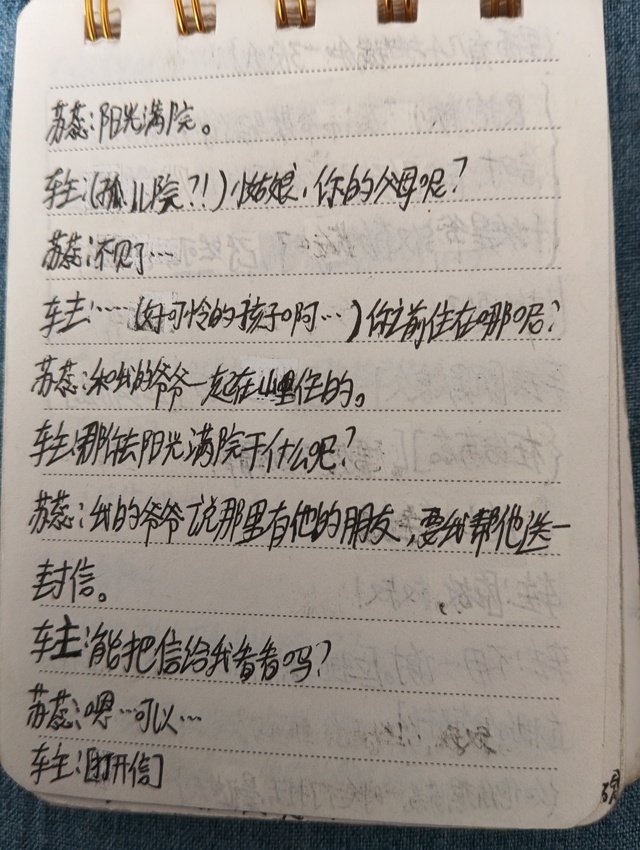 苏蕊:阳光满院。
车主:(孤儿院?!)小姑娘,你的父母呢?
苏蕊:不见了…
车主:……(好可怜的孩子啊…)你之前住在哪呢?
苏蕊:和我的爷爷一起在山里住的。
车主:那你去阳光满院干什么呢?
苏蕊:我的爷爷说那里有他的朋友,要我帮他送一
封信。
车主:能把信给我看看吗?
苏蕊:嗯…可以…
车主:[打开信]